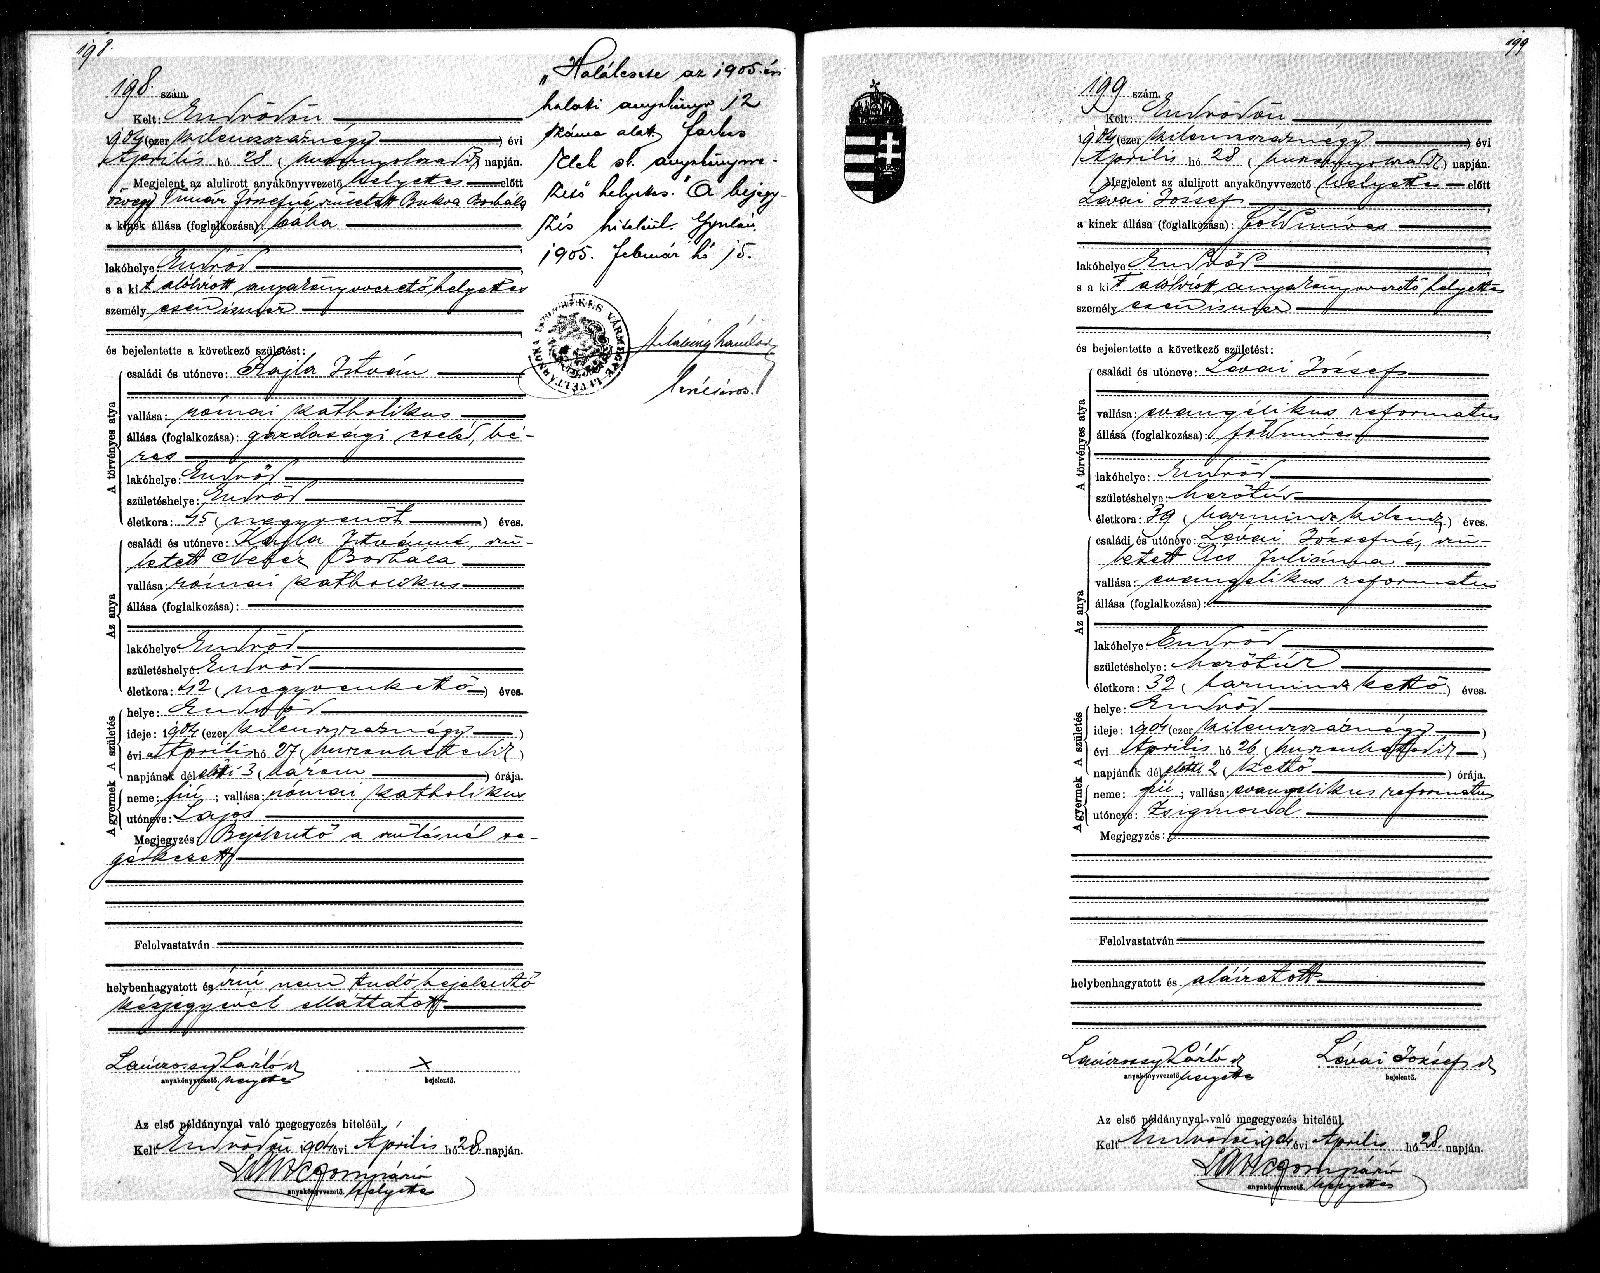 198.
198. szám.
Kelt: Endrődön
1904 (ezer kilencszáznégy) évi
Április hó 28 (huszonnyolczadik) napján.
Megjelent az alulirott anyakönyvvezető helyettes előtt
özvegy Tímár Józsefné, született Bukva Borbála
a kinek állása (foglalkozása): bába
lakóhelye Endrőd
s a kit alólirott anyakönyvvezető helyettes
személyesen ismer
és bejelentette a következő születést:
A törvényes atya
családi és utóneve: Kajla István
vallása: római katholikus
állása (foglalkozása): gazdasági cseléd, bé-
res
lakóhelye: Endrőd
születéshelye: Endrőd
életkora: 45 (negyvenöt) éves.
Az anya
családi és utóneve: Kajla Istvánné, szü-
letett Borbála
vallása: római katholikus
állása (foglalkozása):
lakóhelye: Endrőd
születéshelye: Endrőd
életkora: 42 (negyvenkettő) éves.
A gyermek A születés
helye: Endrőd
ideje: 1904 (ezer kilencszáznégy)
évi Április hó 27 (huszonhetedik)
napjának délelőtti 3 (három) órája.
neme: fiú; vallása: római katholikus
utóneve: Lajos
Megjegyzés: Bejelentő a szülésnél se-
gédkezett
Felolvastatván
helybenhagyatott és írni nem tudó bejelentő
kézjegyével elláttatott
László
anyakönyvvezető. helyettes
x
bejelentő.
Az első példánynyal való megegyezés hiteléül.
Kelt Endrődön 1904 évi Április hó 28. napján.
anyakönyvvezető. helyettes
„Halálesete az 1905. évi
halotti anyakönyv 12
száma alatt. Farkas
Elek st. anyakönyvve-
zető helyettes." A bejegy-
zés hiteléül. Gyulán,
1905. február hó 15.
BÉKÉS VÁRMEGYE LEVÉLTÁRNOKA
199
199 szám.
Kelt: Endrődön
1904 (ezer kilencszáznégy) évi
Április hó 28 (huszonnyolczadik) napján.
Megjelent az alulirott anyakönyvvezető helyettes előtt
Lévai József
a kinek állása (foglalkozása): földmíves
lakóhelye Endrőd
s a kit alólirott anyakönyvvezető helyettes
személyesen ismer
és bejelentette a következő születést:
A törvényes atya
családi és utóneve: Lévai József
vallása: evangélikus reformatus
állása (foglalkozása): földmíves
lakóhelye: Endrőd
születéshelye: Mezőtúr
életkora: 39 (harminczkilencz) éves.
Az anya
családi és utóneve: Lévai Józsefné, szü-
letett Ács Juliánna
vallása: evangélikus reformatus
állása (foglalkozása):
lakóhelye Endrőd
születéshelye: Mezőtúr
életkora: 32 (harminczkettő) éves.
A gyermek A születés
helye: Endrőd
ideje: 1904 (ezer kilencszáznégy)
évi Április hó 26 (huszonhatodik)
napjának délelőtti 2 (kettő) órája.
neme: fiú; vallása: evangélikus reformatus
utóneve: Zsigmond
Megjegyzés:
Felolvastatván
helybenhagyatott és aláíratott
László
anyakönyvvezető. helyettes
Lévai József
bejelentő.
Az első példánynyal való megegyezés hiteléül.
Kelt Endrődön 1904 évi Április hó 28. napján.
anyakönyvvezető. helyettes